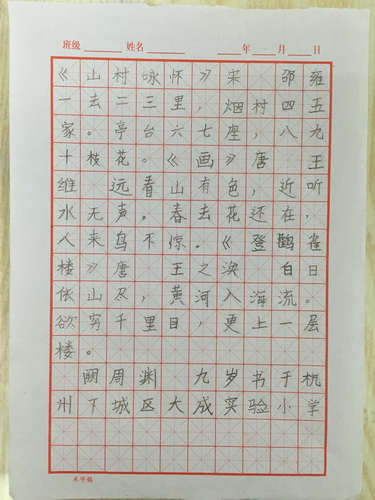 班级 姓名 年 月 日
《山村咏怀》宋 邵雍
一去二三里，烟村四五
家。亭台六七座，八九
十枝花。《画》唐 王
维 远看山有色，近听
水无声。春去花还在，
人来鸟不惊。《登鹳雀
楼》唐 王之涣 白日
依山尽，黄河入海流。
欲穷千里目，更上一层
楼。
阙周渊 九岁书于杭
州下城区大成实验小学
米字稿